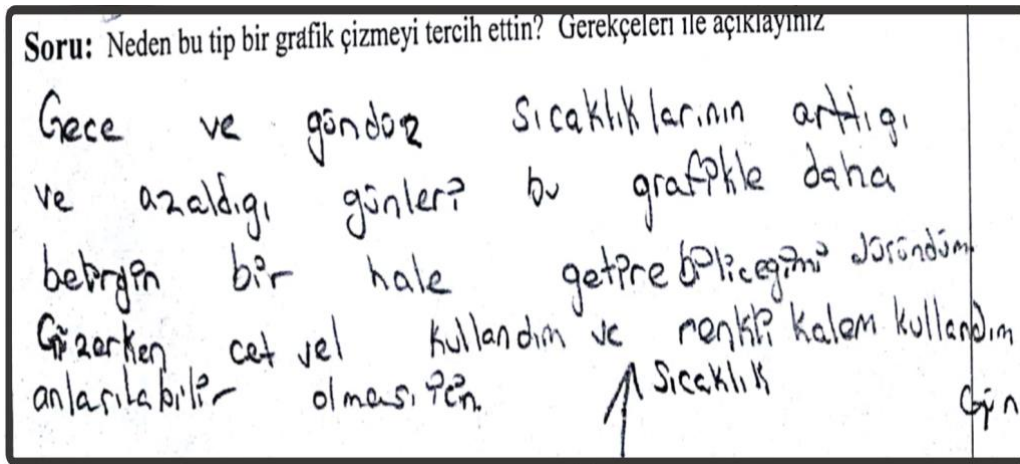 Soru: Neden bu tip bir grafik çizmeyi tercih ettin? Gerekçeleri ile açıklayınız
Gece ve gündüz sıcaklıklarının arttıgı
ve azaldıgı günleri bu grafikle daha
belirgin bir hale getirebiliceğimi düşündüm
Çizerken cetvel kullandım ve renkli kalem kullandım
anlaşılabilir olması için.
Sıcaklık
Gün